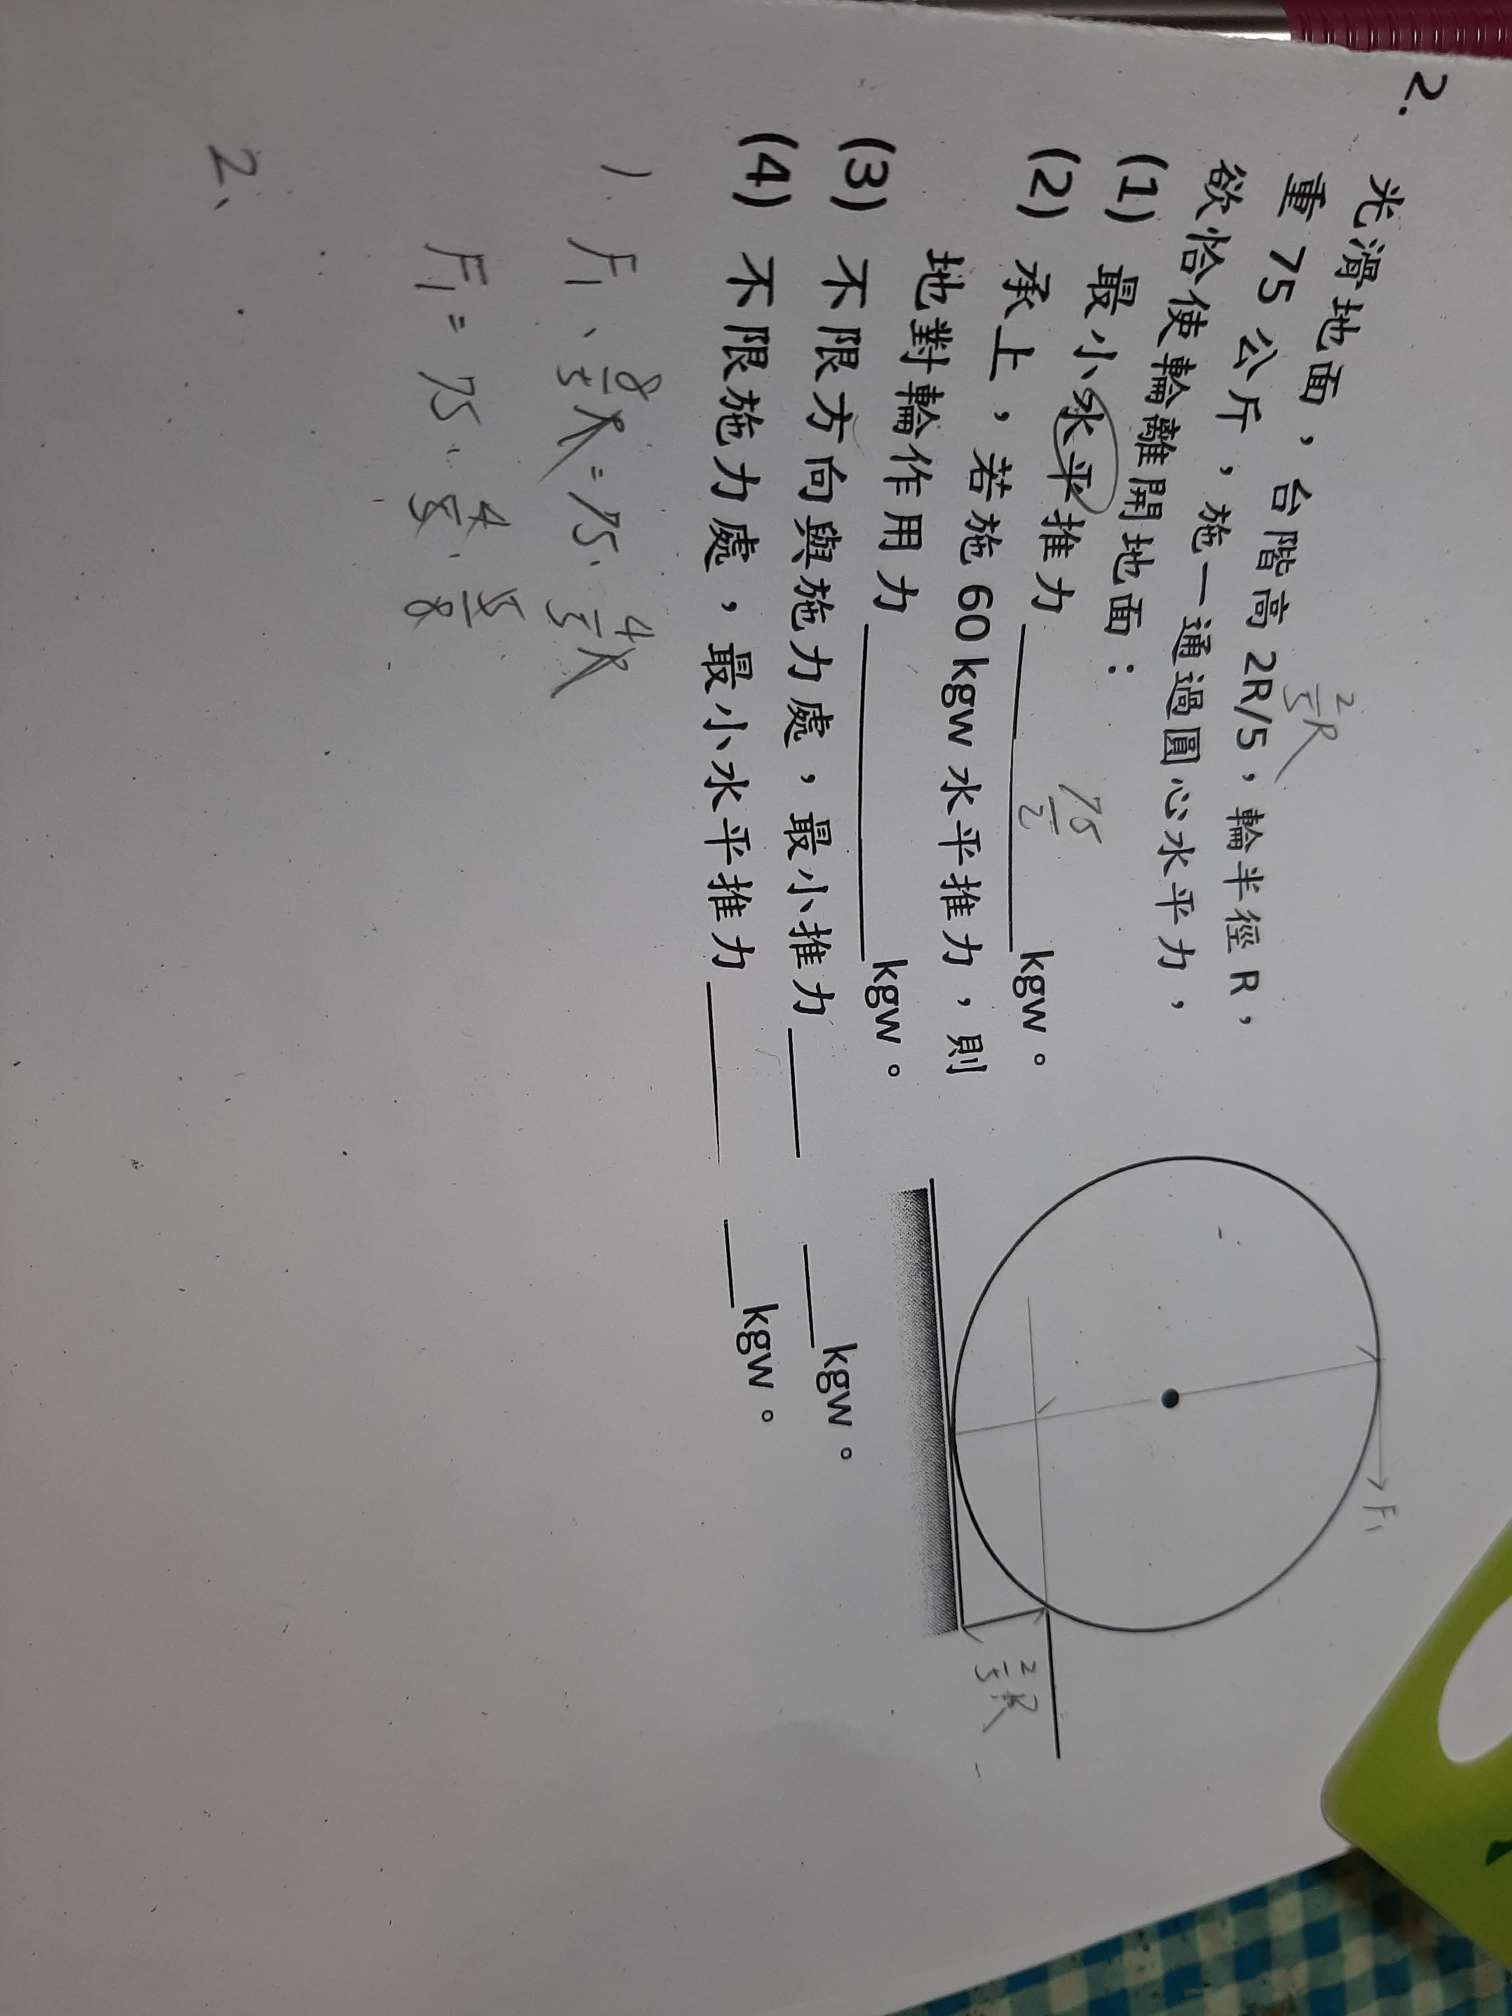 2.
光滑地面，台階高 2R/5，輪半徑 R，
2/5 R
重 75 公斤，施一通過圓心水平力，
欲恰使輪離開地面：
(1) 最小水平推力 ______ kgw。
75/2
(2) 承上，若施 60 kgw 水平推力，則
地對輪作用力 ______ kgw。
(3) 不限方向與施力處，最小推力 ______ kgw。
(4) 不限施力處，最小水平推力 ______ kgw。
F₁
2/5 R
1. F₁、8/5 R = 75· 4/5 R
F₁ = 75· 4/5 · 5/8
2、